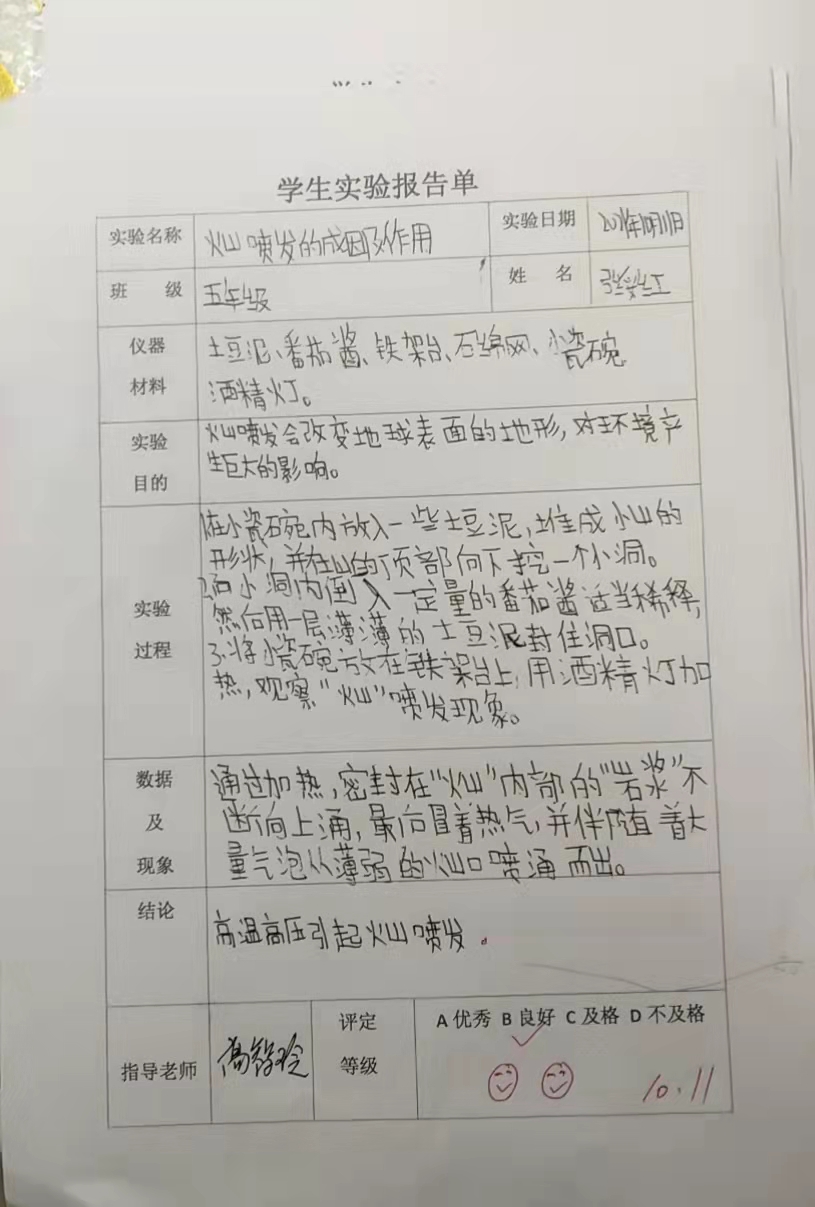 学生实验报告单
实验名称 火山喷发的成因及作用 实验日期
班 级 五年级 姓 名
仪器 土豆泥、番茄酱、铁架台、石绵网、小瓷碗
材料 酒精灯。
实验 火山喷发会改变地球表面的地形,对环境产
目的 生巨大的影响。
在小瓷碗内放入一些土豆泥,堆成小山的
形状,并在山的顶部向下挖一个小洞。
小洞内倒入一定量的番茄酱适当稀释,
实验 然后用一层薄薄的土豆泥封住洞口。
过程 3.将小瓷碗放在铁架台上,用酒精灯加
热,观察“火山”喷发现象。
数据 通过加热,密封在“火山”内部的“岩浆”不
及 断向上涌,最后冒着热气,并伴随着大
现象 量气泡从薄弱的火山口喷涌而出。
结论
高温高压引起火山喷发。
指导老师 评定 等级 A 优秀 B 良好 C 及格 D 不及格
10.11